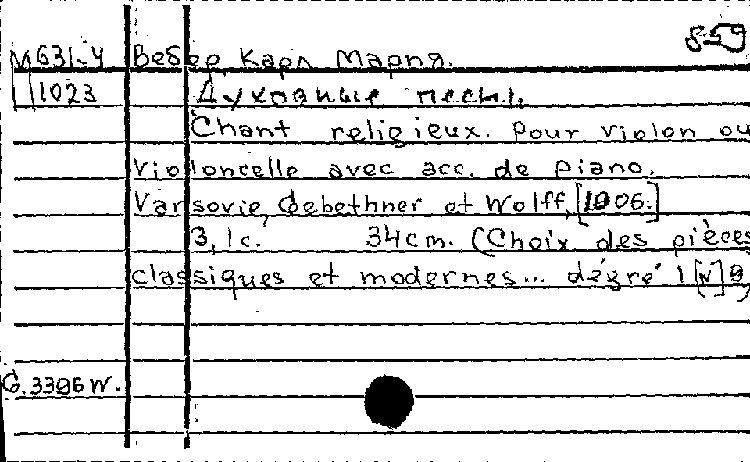 859
М631-4 Вебер, Карл Мария.
1023 Духовные песы.
Chant religieux. Pour violon ou
violoncelle avec acc. de piano.
Varsovie, Gebethner et Wolff, [1906.]
3, 1 c. 34cm. (Choix des pièces
classiques et modernes... dégré I [N] 9,
G. 3396 W.